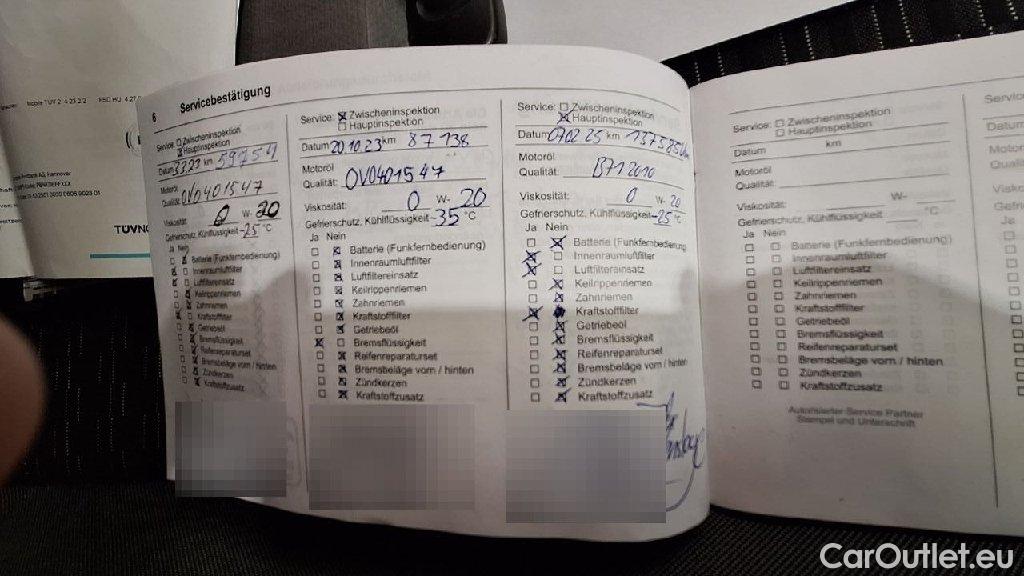 6 Servicebestätigung
Service: Zwischeninspektion
Hauptinspektion
km 59754
Motoröl
Qualität: OV0401547
Viskosität
0 W- 20
Gefrierschutz, Kühlflüssigkeit -25 °C
Ja Nein
Batterie (Funkfernbedienung)
Innenraumluftfilter
Luftfiltereinsatz
Keilrippenriemen
Zahnriemen
Kraftstofffilter
Getriebeöl
Bremsflüssigkeit
Reifenreparaturset
Bremsbeläge vorn / hinten
Zündkerzen
Kraftstoffzusatz
Service: Zwischeninspektion
Hauptinspektion
Datum 20.10.23 km 87 138
Motoröl
Qualität: OV0401547
Viskosität: 0 W- 20
Gefrierschutz, Kühlflüssigkeit -35 °C
Ja Nein
Batterie (Funkfernbedienung)
Innenraumluftfilter
Luftfiltereinsatz
Keilrippenriemen
Zahnriemen
Kraftstofffilter
Getriebeöl
Bremsflüssigkeit
Reifenreparaturset
Bremsbeläge vorn / hinten
Zündkerzen
Kraftstoffzusatz
Service: Zwischeninspektion
Hauptinspektion
Datum 07.02.25 km
Motoröl
Qualität: B712010
Viskosität: 0 W- 20
Gefrierschutz, Kühlflüssigkeit -25 °C
Ja Nein
Batterie (Funkfernbedienung)
Innenraumluftfilter
Luftfiltereinsatz
Keilrippenriemen
Zahnriemen
Kraftstofffilter
Getriebeöl
Bremsflüssigkeit
Reifenreparaturset
Bremsbeläge vorn / hinten
Zündkerzen
Kraftstoffzusatz
Service: Zwischeninspektion
Hauptinspektion
Datum km
Motoröl
Qualität:
Viskosität: W-
Gefrierschutz, Kühlflüssigkeit °C
Ja Nein
Batterie (Funkfernbedienung)
Innenraumluftfilter
Luftfiltereinsatz
Keilrippenriemen
Zahnriemen
Kraftstofffilter
Getriebeöl
Bremsflüssigkeit
Reifenreparaturset
Bremsbeläge vorn / hinten
Zündkerzen
Kraftstoffzusatz
Autorisierter Service Partner
Stempel und Unterschrift
CarOutlet.eu